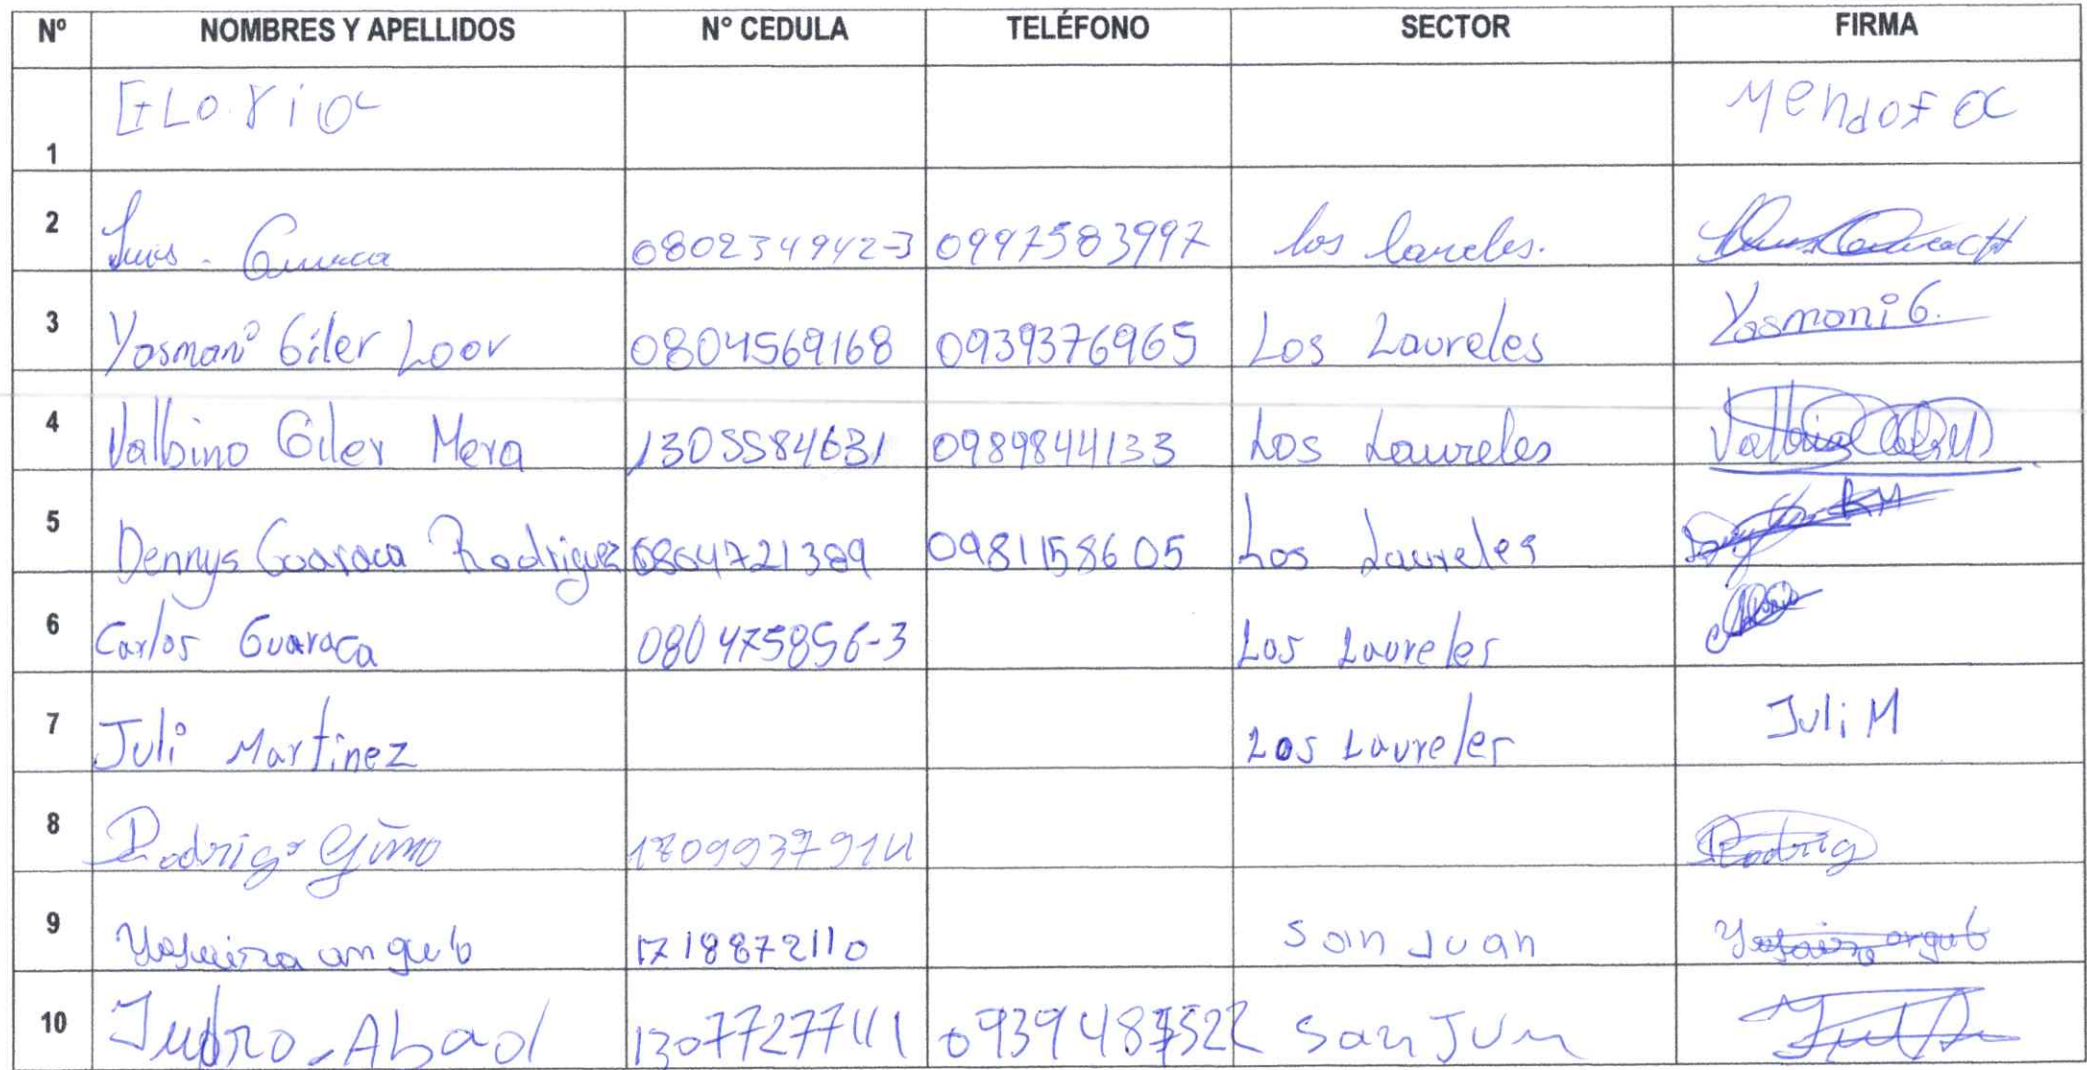 Nº NOMBRES Y APELLIDOS Nº CEDULA TELÉFONO SECTOR FIRMA
1 GLORia Mendoza
2 Luis - Guaraca 080234942-3 0997583997 los laureles.
3 Yosmani Giler Loor 0804569168 0939376965 Los Laureles Yosmani G.
4 Valbino Giler Mera 1305584631 0989844133 Los Laureles
5 Dennys Guaraca Rodriguez 0804721389 0981158605 Los Laureles
6 Carlos Guaraca 080475856-3 Los Laureles
7 Juli Martinez Los Laureles Juli M
8 Rodrigo 1709937914 Rodrig
9 angulo 1718872110 San Juan
10 Abad 1307727741 San Jun